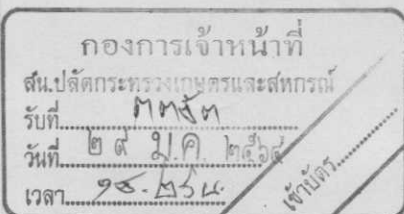 กองการเจ้าหน้าที่
สน.ปลัดกระทรวงเกษตรและสหกรณ์
รับที่
วันที่ ๒๙ ม.ค. ๒๕๖๔
เวลา
เข้าบัตร